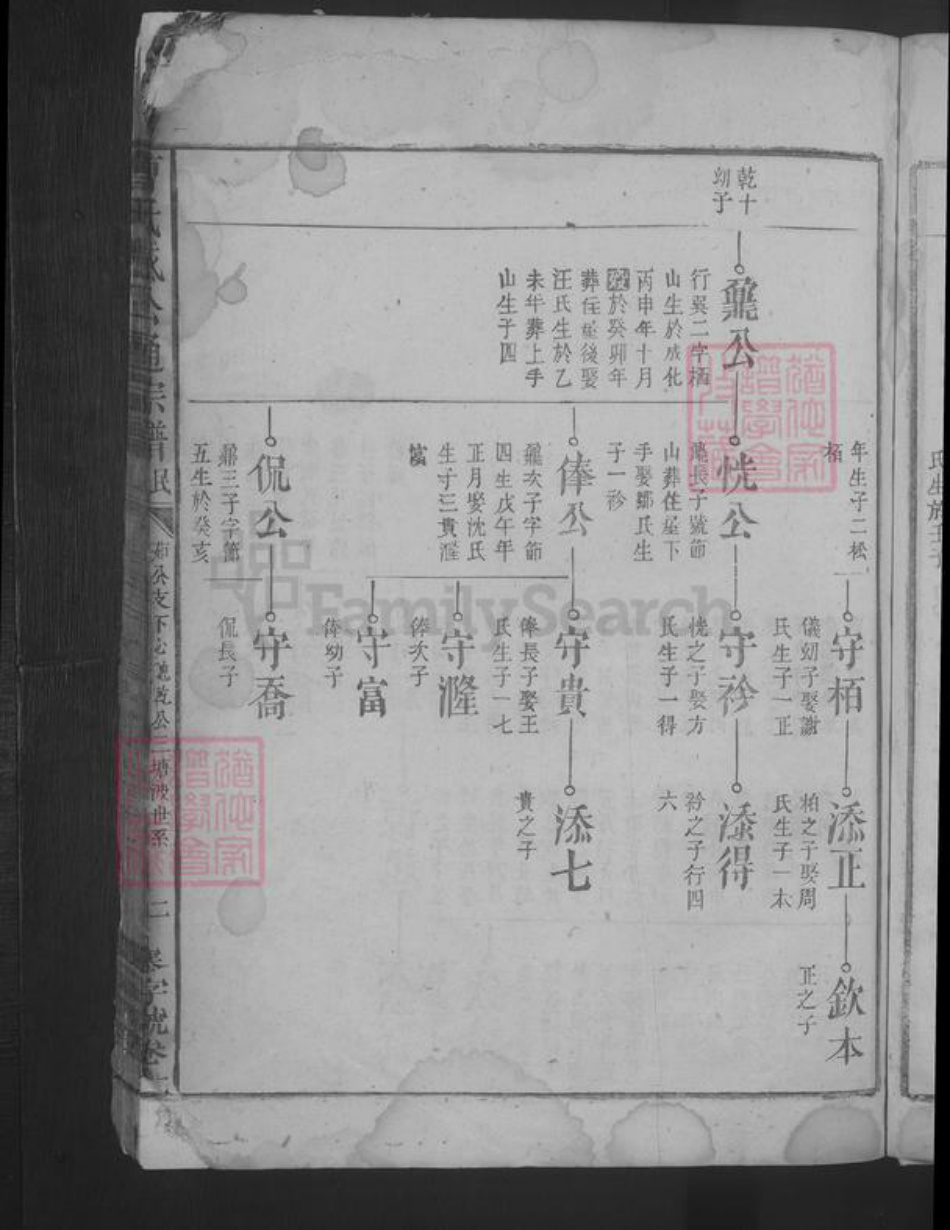 乾十
幼子
鼐公
行巽二字栢
山生於成化
丙申年十月
歿於癸卯年
葬住屋後娶
汪氏生於乙
未年葬上手
山生子四
年生子二松
栢
恍公
鼐長子號節
山葬住屋下
手娶鄒氏生
子一衿
俸公
鼐次子字節
四生戊午年
正月娶沈氏
生子三貴漋
富
侃公
鼐三子字節
五生於癸亥
守栢
儀幼子娶謝
氏生子一正
守衿
恍之子娶方
氏生子一得
守貴
俸長子娶王
氏生子一七
守漋
俸次子
守富
俸幼子
守喬
侃長子
添正
栢之子娶周
氏生子一本
添得
衿之子行四
六
添七
貴之子
欽本
正之子
公通宗譜
公支下
乾公二塘
世系
二
字號卷
FamilySearch